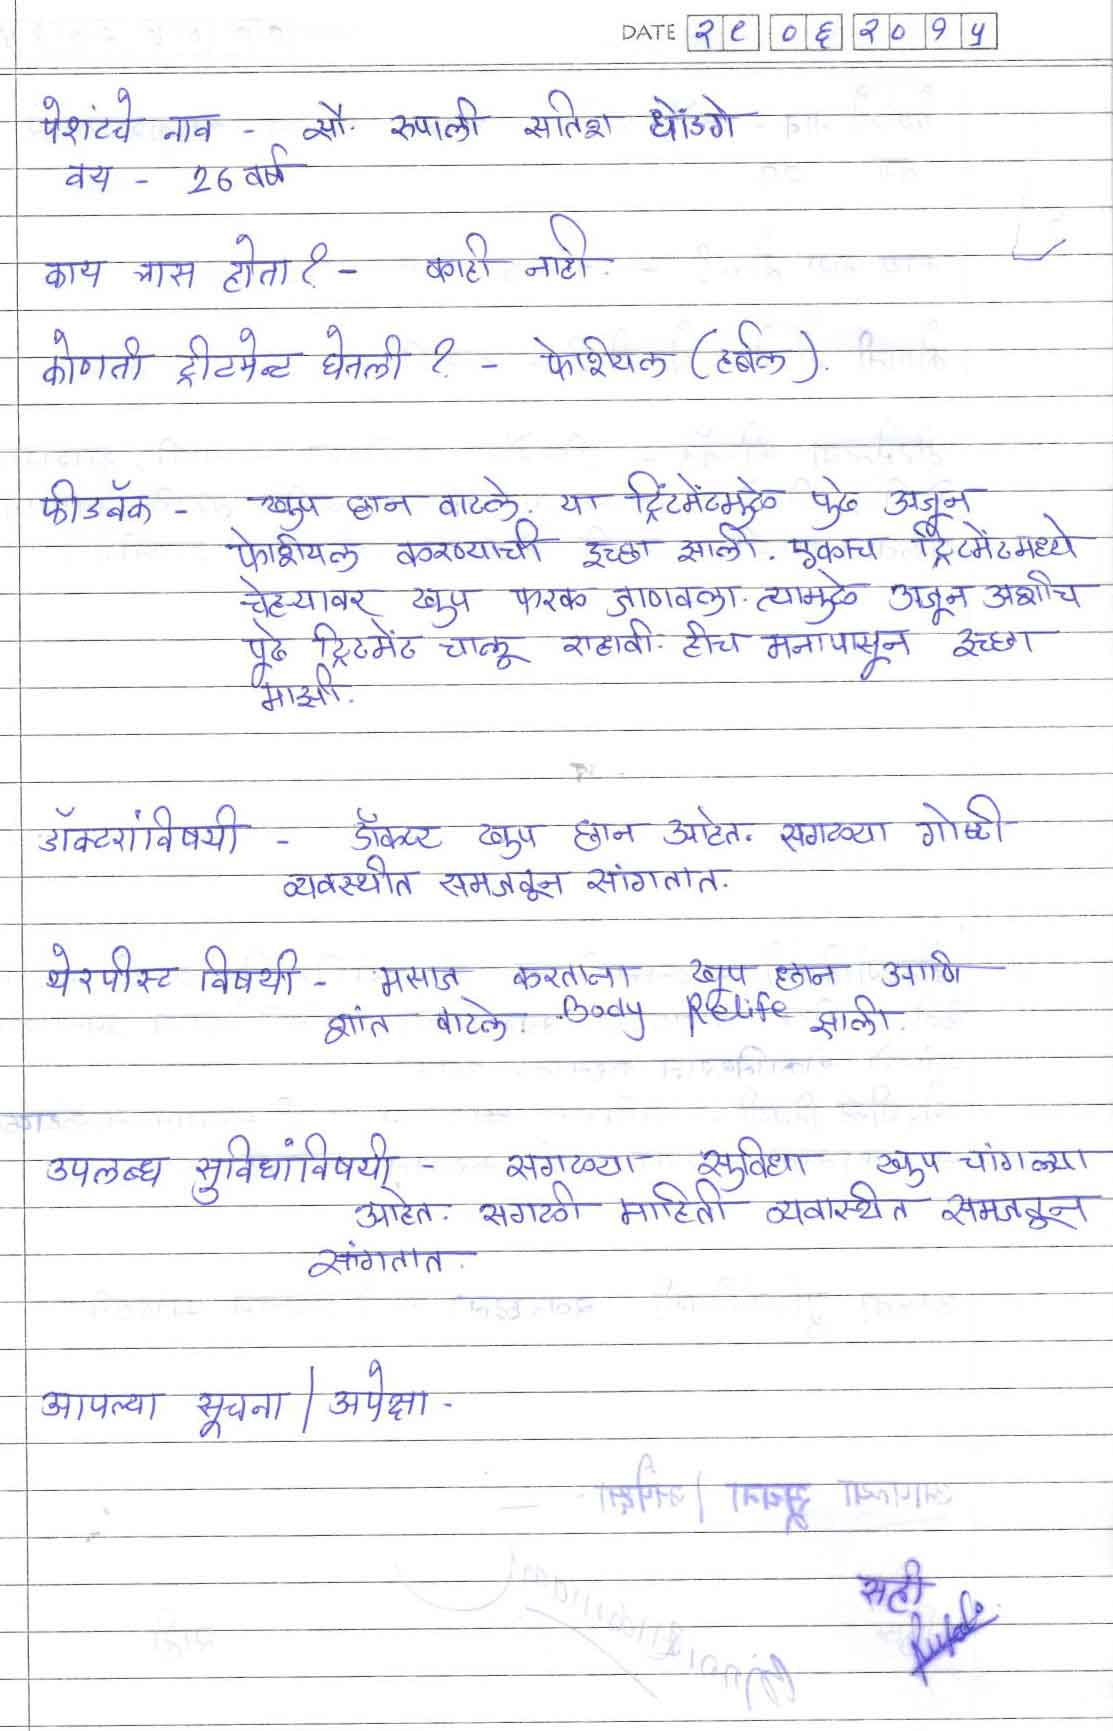 DATE २९ ०६ २०१५
पेशंटचे नाव - सौ. रुपाली सतिश धोंडगे
वय - 26 वर्ष
काय त्रास होता? - काही नाही.
कोणती ट्रीटमेन्ट घेतली? - फेशीयल (हर्बल).
फीडबॅक - खुप छान वाटले. या ट्रिटमेंटमुळे पुढे अजून
फेशियल करण्याची इच्छा झाली. एकाच ट्रिटमेंटमध्ये
चेहऱ्यावर खुप फरक जाणवला. त्यामुळे अजून अशीच
पूढे ट्रिटमेंट चालू राहावी. हीच मनापासून इच्छा
माझी.
डॉक्टरांविषयी - डॉक्टर खुप छान आहेत. सगळ्या गोष्टी
व्यवस्थीत समजवून सांगतात.
थेरपीस्ट विषयी - मसाज करताना खूप छान आणि
शांत वाटले. Body Relife झाली.
उपलब्ध सुविधांविषयी - सगळ्या सुविधा खुप चांगल्या
आहेत. सगळी माहिती व्यवास्थीत समजवून
सांगतात.
आपल्या सूचना / अपेक्षा -
सही
Rupali